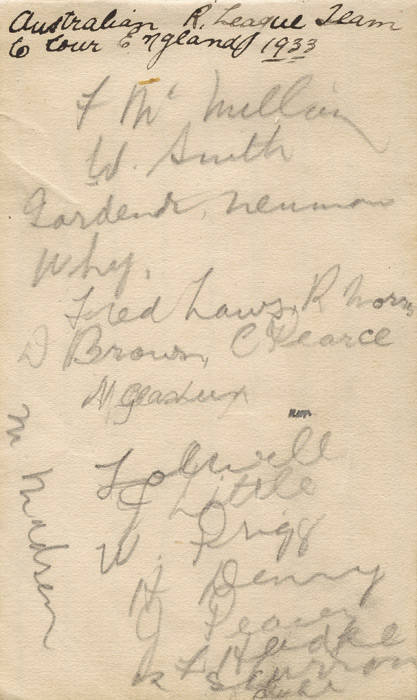 Australian R. League Team
to tour England 1933
F Mc Millan
W. Smith
Gardener, Neuman
Why.
Fred Laws, R Morris
D Brown, C Pearce
M Glasheen
F O'Connell
J Little
W. Prigg
H Denny
J Pearce
F Neake
M Madsen